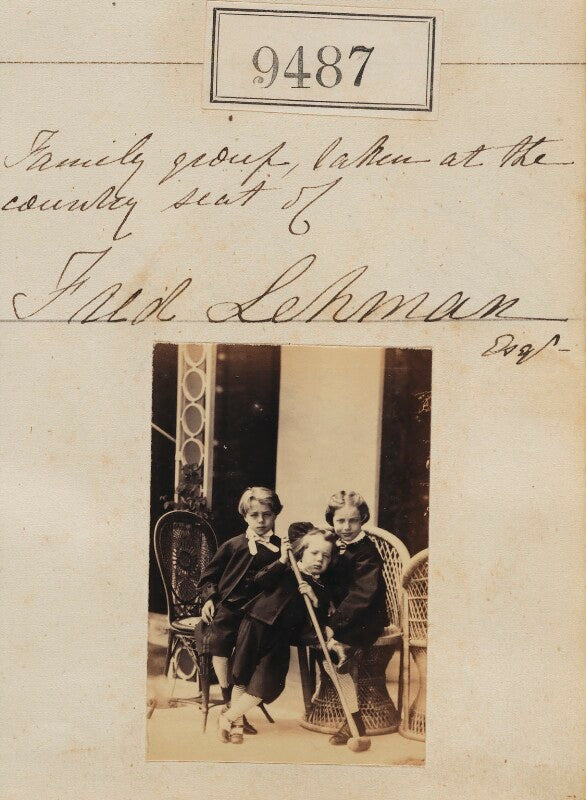 9487
Family group, taken at the
country seat of
Fred Lehman
Esqr